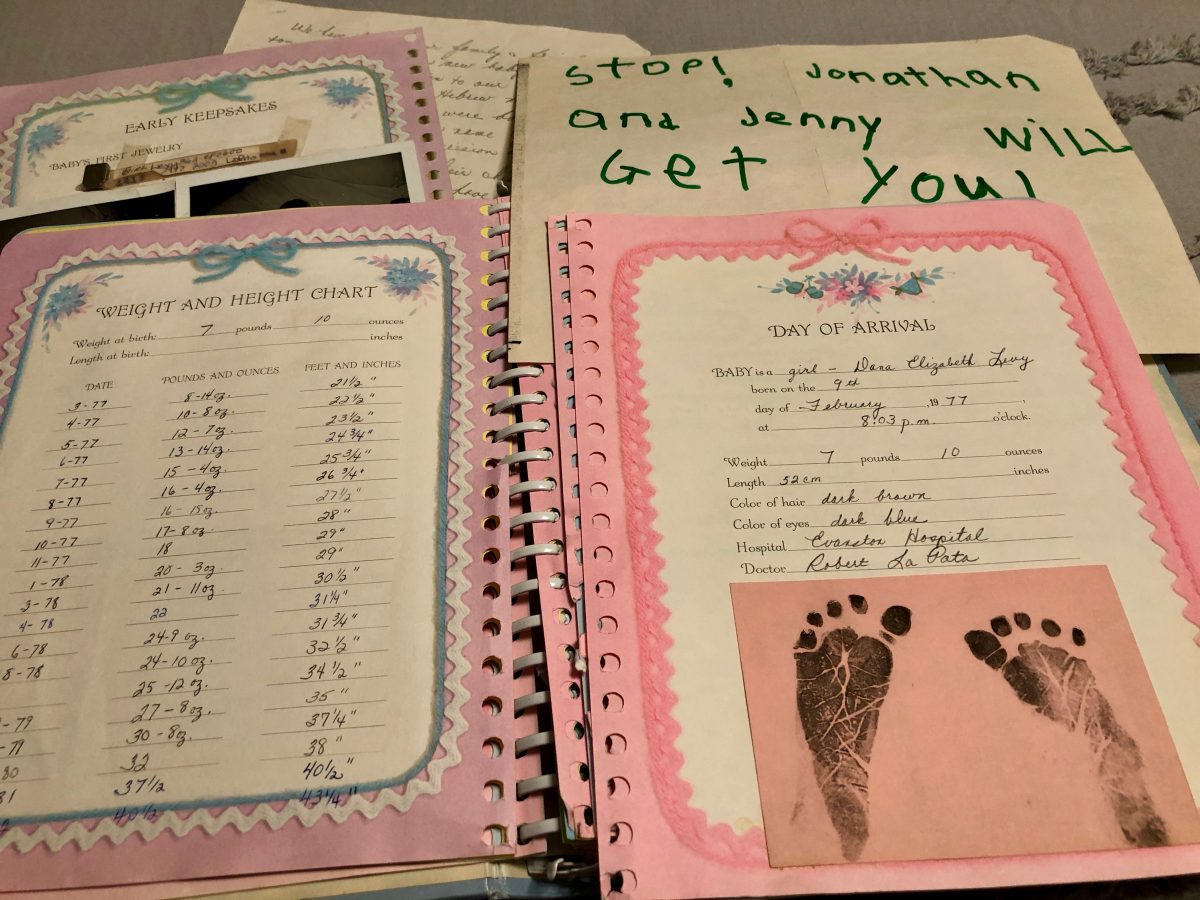 We
family
new
to our
Hebrew
were
name
STOP! Jonathan
and Jenny WiLL
GeT You!
EARLY KEEPSAKES
BABY'S FIRST JEWELRY
WEIGHT AND HEIGHT CHART
Weight at birth: 7 pounds 10 ounces
Length at birth: inches
DATE POUNDS AND OUNCES FEET AND INCHES
3-77 8-14oz. 21½"
4-77 10-8oz. 22½"
5-77 12-7oz. 23½"
6-77 13-14oz. 24¾"
7-77 15-4oz. 25¾"
8-77 16-4oz. 26¾"
9-77 16-15oz. 27½"
10-77 17-8oz. 28"
11-77 18 29"
1-78 20-3oz. 29"
3-78 21-11oz. 30½"
4-78 22 31¼"
6-78 24-9oz. 31¾"
8-78 24-10oz. 32½"
25-12oz. 34½"
-79 27-8oz. 35"
-79 30-8oz. 37¼"
80 32 38"
81 37½ 40½"
2 40½ 43¼"
DAY OF ARRIVAL
BABY is a girl - Dana Elizabeth Levy
born on the 9th
day of February, 1977,
at 8:03 p.m. o'clock.
Weight 7 pounds 10 ounces
Length 52 cm inches
Color of hair dark brown
Color of eyes dark blue
Hospital Evanston Hospital
Doctor Robert La Pata